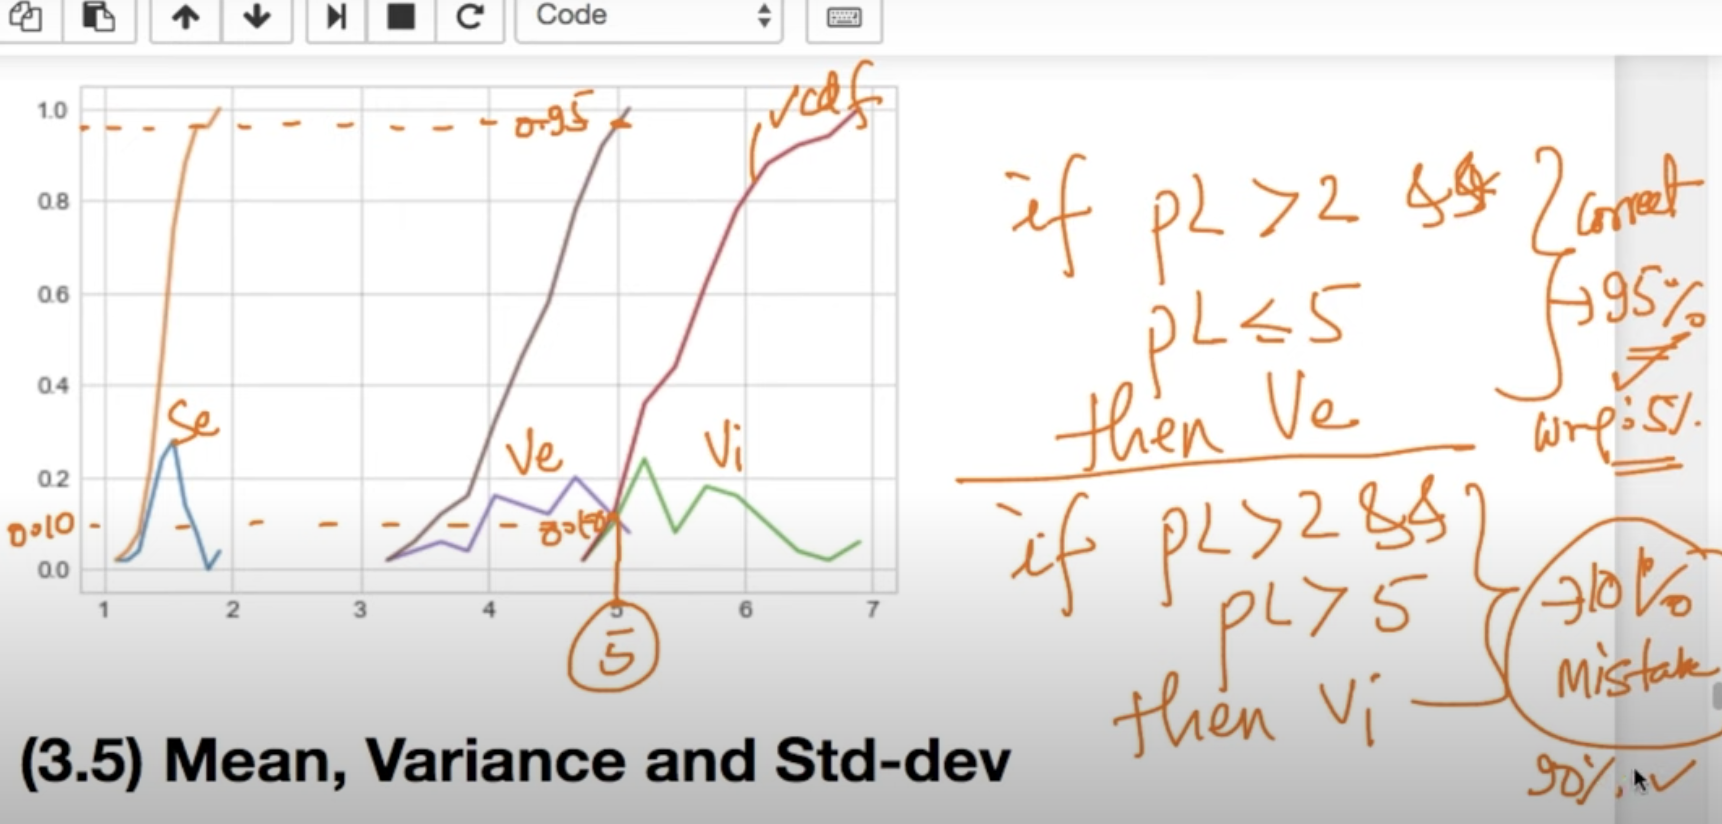 Code
1.0
0.8
0.6
0.4
0.2
0.0
1 2 3 4 5 6 7
0.95
cdf
Se
Ve
Vi
0.10
0.10
5
if PL > 2 &&
PL ≤ 5
then Ve
correct
→ 95%
: 5%
if PL > 2 &&
PL > 5
then Vi
→ 10%
mistake
90% ✓
(3.5) Mean, Variance and Std-dev